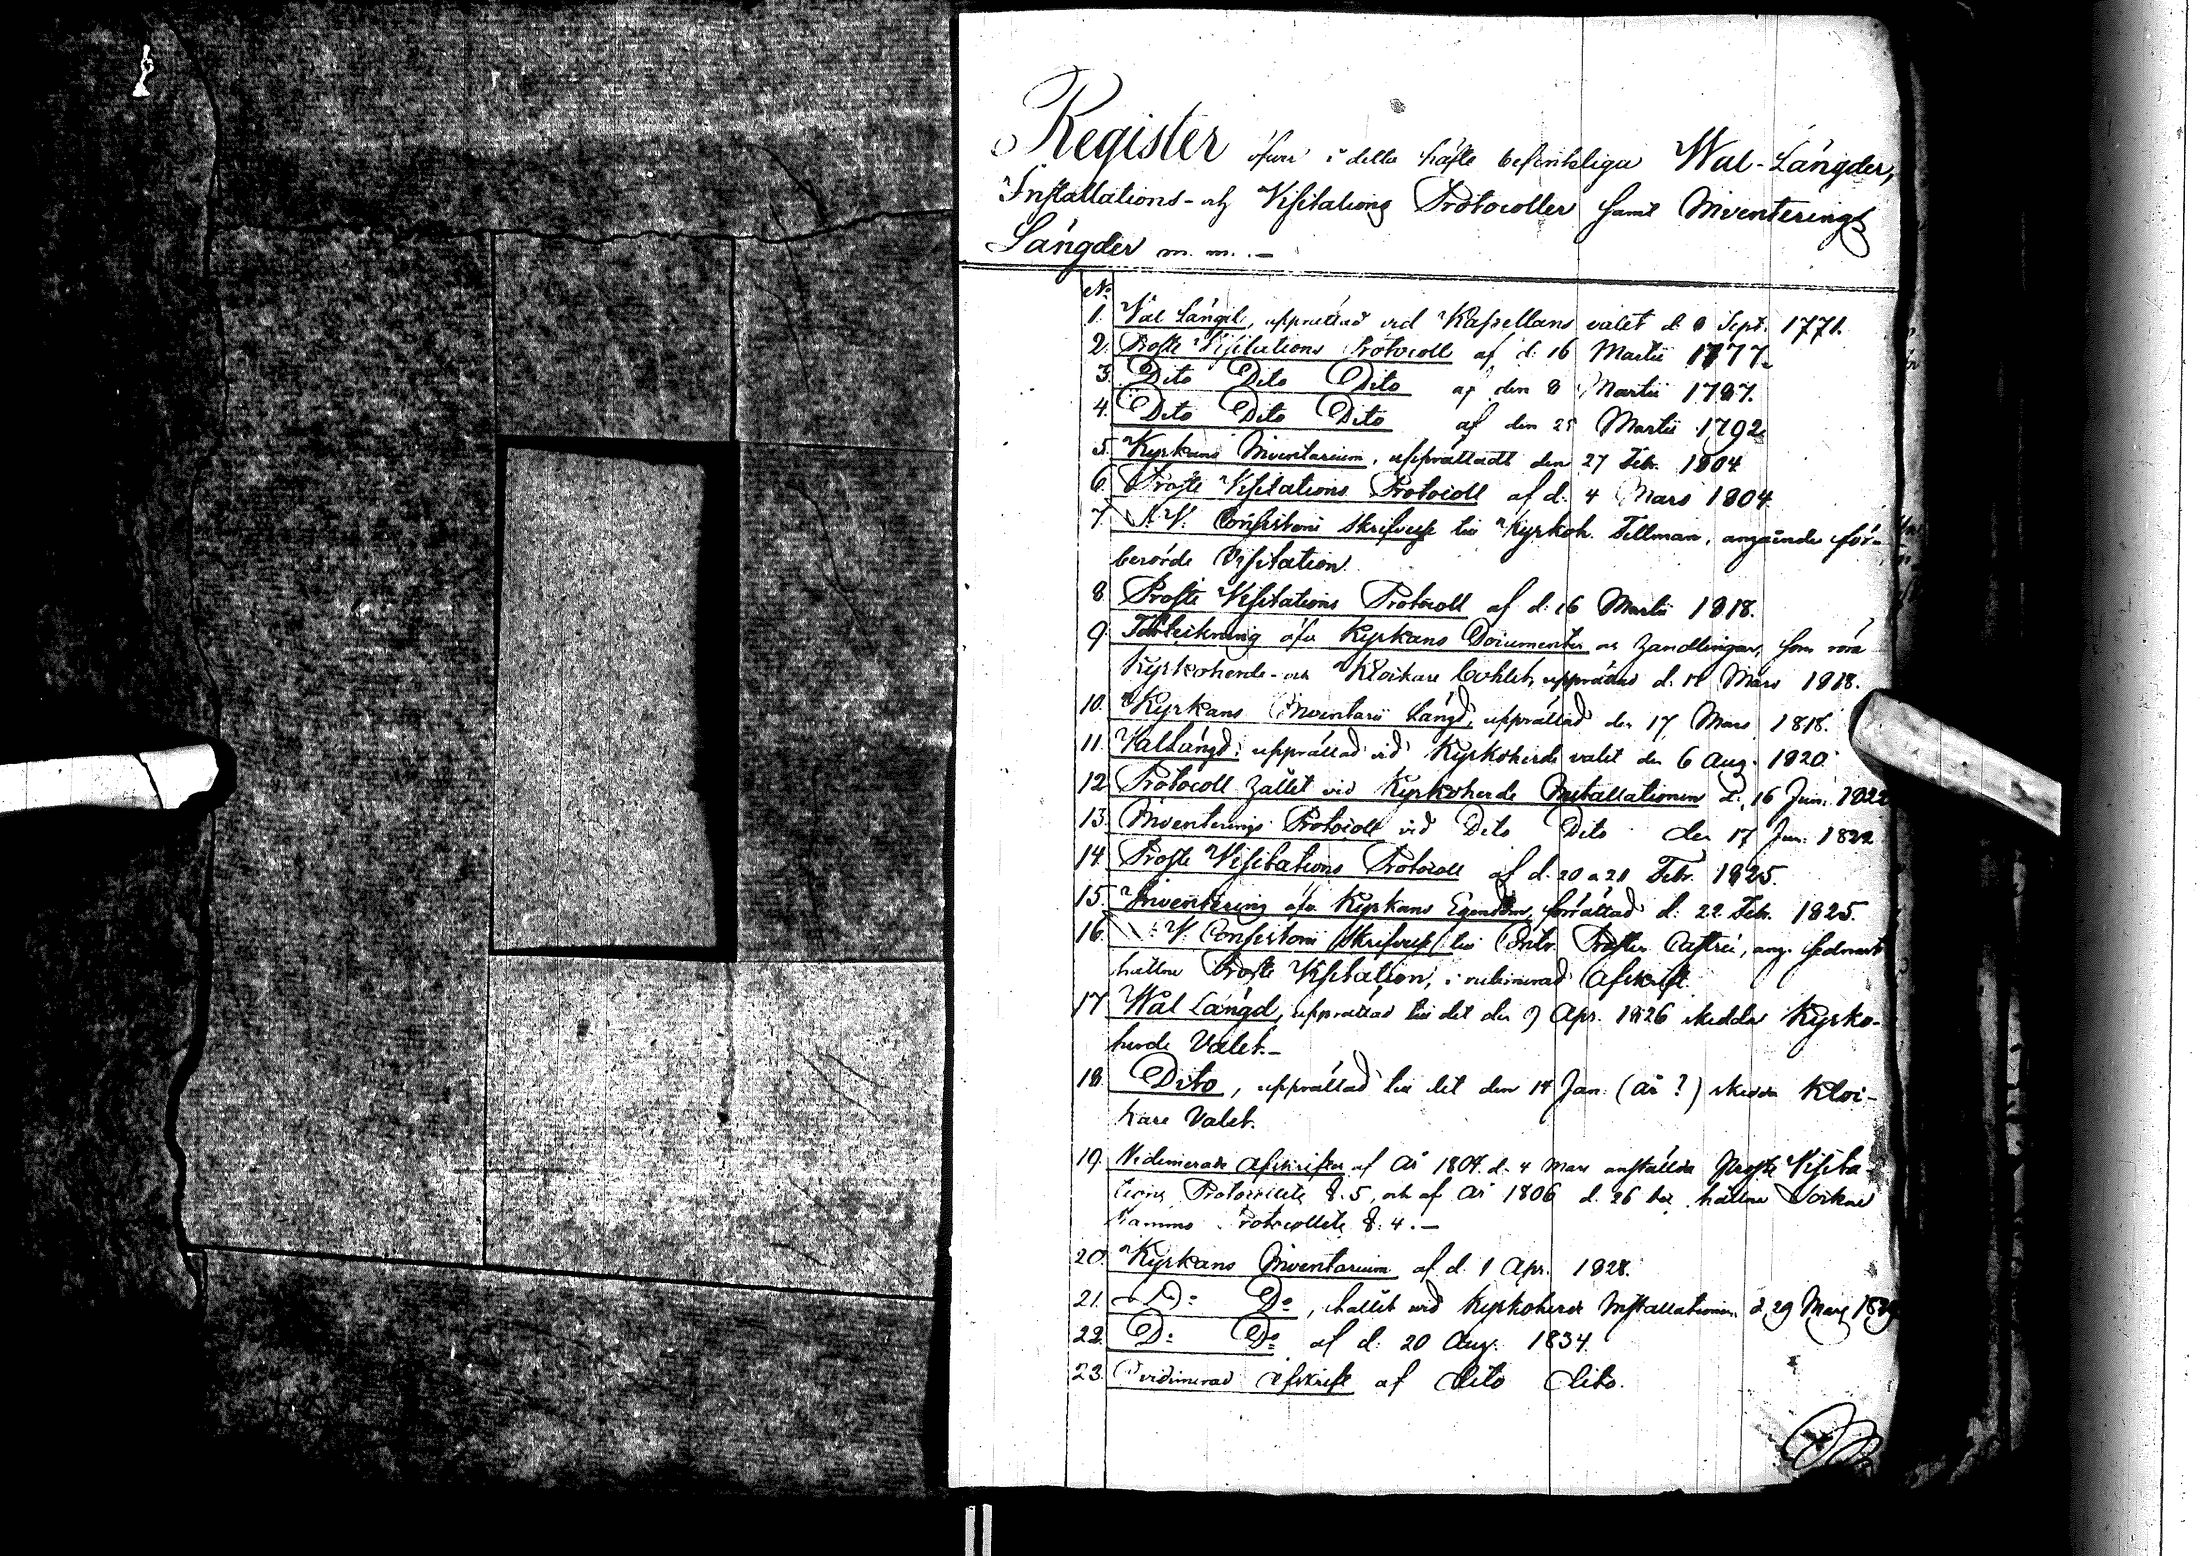 Register öfver i detta häfte befinteliga Wal-Längder,
Installations- och Visitations Protocoller samt Inventerings
Längder m. m. -
No
1. Val Längd, upprättad vid Kapellans valet d. 8 Sept. 1771.
2. Proste Visitations Protocoll af d. 16 Martii 1777.
3. Dito Dito Dito af den 8 Martii 1787.
4. Dito Dito Dito af den 25 Martii 1792
5. Kyrkans Inventarium, upprättadt den 27 Febr. 1804
6. Proste Visitations Protocoll af d. 4 Mars 1804
7. M. V. Consistorii Skrifvelse till Kyrkoh. Tillman, angående för-
berörde Visitation.
8. Proste Visitations Protocoll af d. 16 Martii 1818.
9. Förteckning öfver Kyrkans Documenter och Handlingar, som röra
Kyrkoherde- och Klockare Bohlet, upprättad d. Mars 1818.
10. Kyrkans Inventarii Längd, upprättad den 17 Mars 1818.
11. Vallängd, upprättad vid Kyrkoherde valet den 6 Aug. 1820.
12. Protocoll hållet vid Kyrkoherde Installationen d. 16 Jun. 1822
13. Inventerings Protocoll vid Dito Dito den 17 Jun. 1822
14. Proste Visitations Protocoll af d. 20 o 21 Febr. 1825.
15. Inventering öfver Kyrkans Egendom, förrättad d. 22 Febr. 1825.
16. M. V. Consistorii Skrifvelse till Prosten ang. sednast
hållne Proste Visitation, i vidimerad Afskrift.
17. Wal Längd, upprättad till det den 9 Apr. 1826 skedda Kyrko-
herde Valet. -
18. Dito, upprättad till det den 14 Jan. (år ?) skedda Kloc-
kare Valet.
19. Vidimerade Afskrifter af År 1804 d. 4 Mars anställda Proste Visita-
tions Protocollets §. 5, och af År 1806 d. 26 hållne Sockne
stämmo Protocollets §. 4. -
20. Kyrkans Inventarium af d. 1 Apr. 1828.
21. Do Do, hållit vid Kyrkoherde Installationen d. 29 Mars
22. Do Do af d. 20 Aug. 1834.
23. vidimerad Afskrift af dito dito.